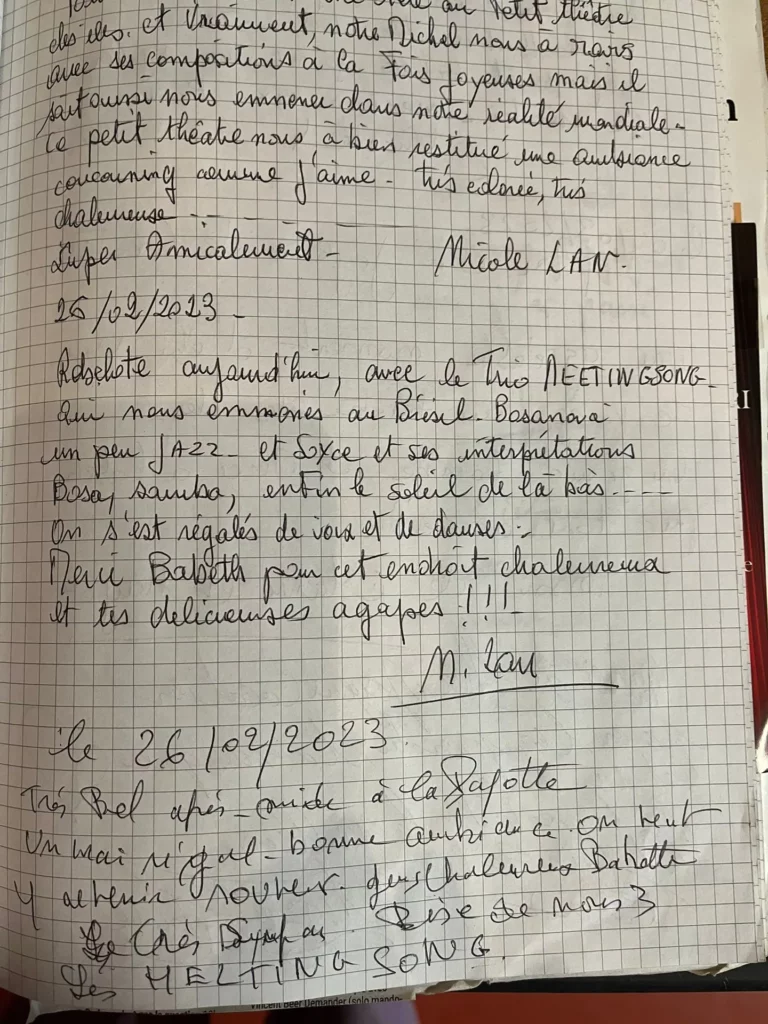 au Petit théâtre
des iles. et Vraiment, notre Michel nous à ravis
avec ses compositions à la Fois Joyeuses mais il
sait aussi nous emmener dans notre réalité mondiale-
Ce petit théâtre nous à bien restitué une ambiance
coucouning comme J'aime - très colorée, très
chaleureuse ...
Super Amicalement - Nicole LAN.
26/02/2023 -
aujourd'hui, avec le Trio MEETINGSONG-
qui nous emmonés au Brésil. Bosanova
un peu JAZZ - et Soyce et ses interprétations
Bosa, samba, enfin le soleil de là bàs ----
On s'est régalés de voix et de danses :-
Merci Babeth pour cet endroit chaleureux
et tes delicieuses agapes !!!
M. Lan
le 26/02/2023
Très Bel après-midi à la
Un régal - bonne ambiance on veut
Y revenir souvent. gens Chaleureux
très Sympas Bise de nous 3
Les MELTING SONG.
Vincent Beer Demander (solo mando-